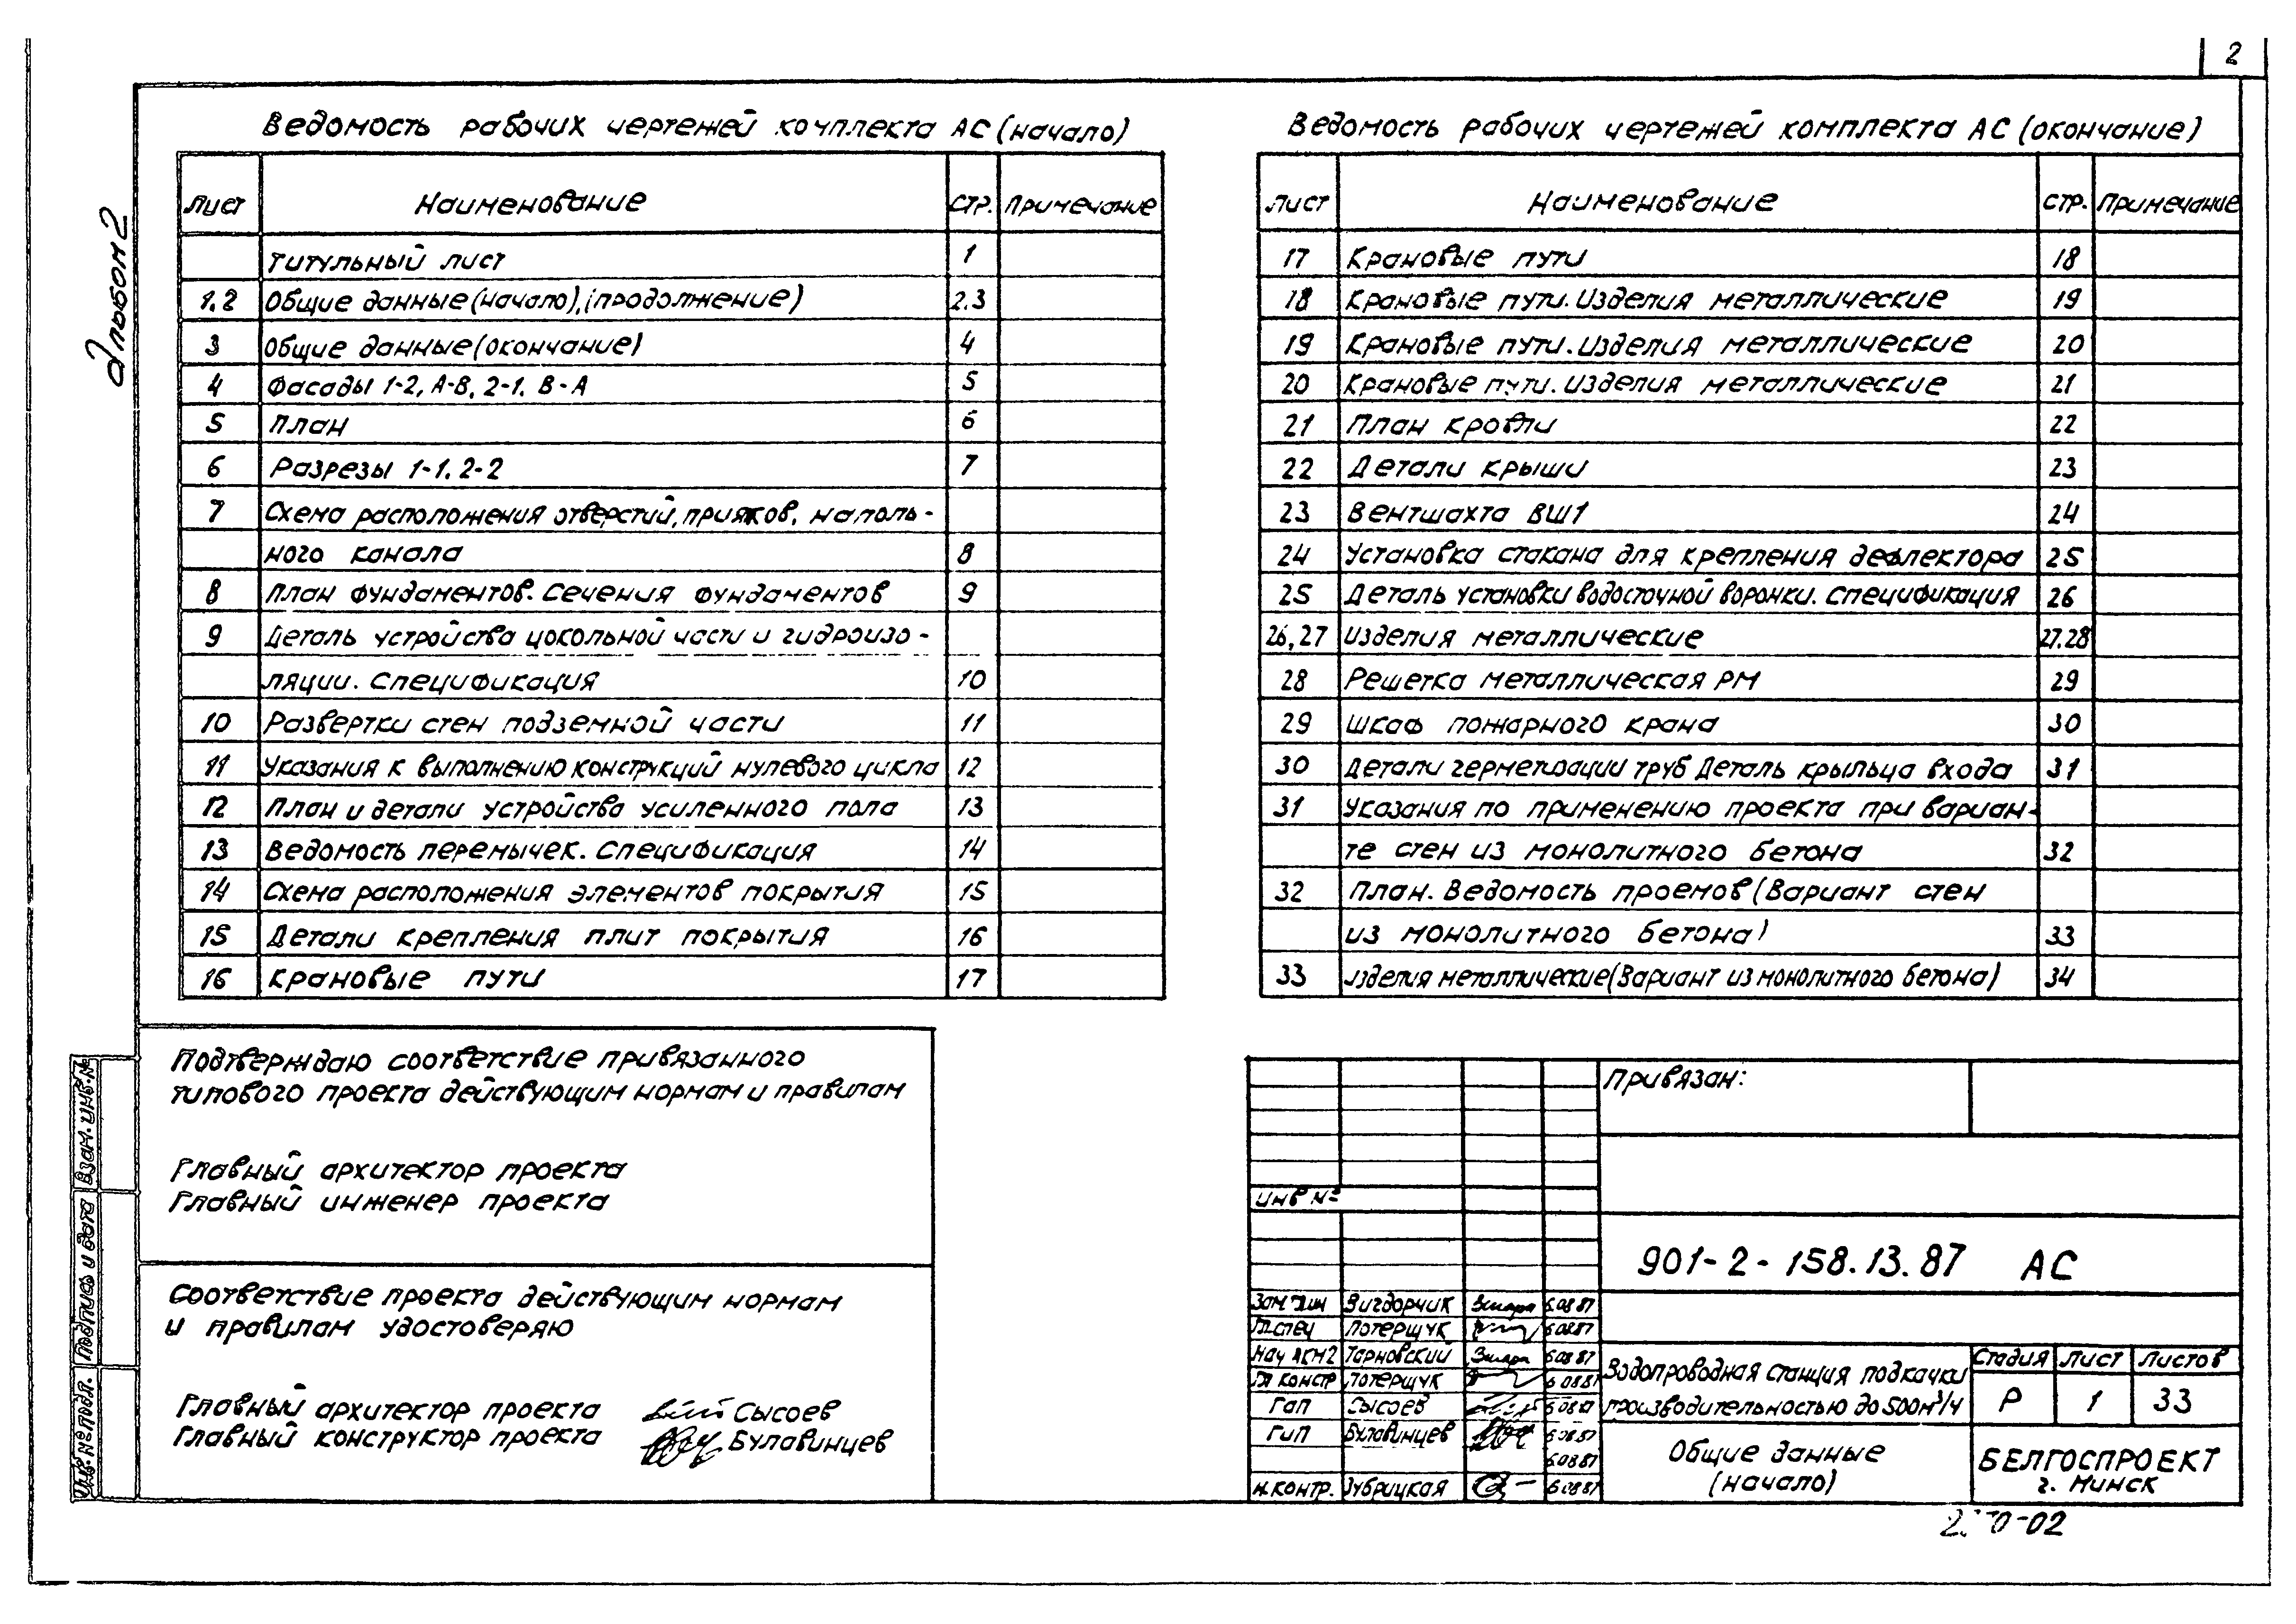 2
Альбом 2
Ведомость рабочих чертежей комплекта АС (начало)
Лист Наименование Стр. Примечание
Титульный лист 1
1.2 Общие данные (начало), (продолжение) 2.3
3 Общие данные (окончание) 4
4 Фасады 1-2, А-В, 2-1, В-А 5
5 План 6
6 Разрезы 1-1. 2-2 7
7 Схема расположения отверстий, приямков, наполь-
ного канала 8
8 План фундаментов. Сечения фундаментов 9
9 Деталь устройства цокольной части и гидроизо-
ляции. Спецификация 10
10 Развертки стен подземной части 11
11 Указания к выполнению конструкций нулевого цикла 12
12 План и детали устройства усиленного пола 13
13 Ведомость перемычек. Спецификация 14
14 Схема расположения элементов покрытия 15
15 Детали крепления плит покрытия 16
16 Крановые пути 17
Ведомость рабочих чертежей комплекта АС (окончание)
Лист Наименование Стр. Примечание
17 Крановые пути 18
18 Крановые пути. Изделия металлические 19
19 Крановые пути. Изделия металлические 20
20 Крановые пути. Изделия металлические 21
21 План кровли 22
22 Детали крыши 23
23 Вентшахта ВШ1 24
24 Установка стакана для крепления дефлектора 25
25 Деталь установки водосточной воронки. Спецификация 26
26,27 Изделия металлические 27.28
28 Решетка металлическая РМ 29
29 Шкаф пожарного крана 30
30 Детали герметизации труб Деталь крыльца входа 31
31 Указания по применению проекта при вариан-
те стен из монолитного бетона 32
32 План. Ведомость проемов (Вариант стен
из монолитного бетона) 33
33 Изделия металлические (Вариант из монолитного бетона) 34
Подтверждаю соответствие привязанного
типового проекта действующим нормам и правилам
Главный архитектор проекта
Главный инженер проекта
Соответствие проекта действующим нормам
и правилам удостоверяю
Главный архитектор проекта Сысоев
Главный конструктор проекта Булавинцев
Взам. инв. №
Подпись и дата
Инв. № подл.
Привязан:
Инв №
901-2-158.13.87 АС
Зам Вигдорчик 6.08 87
Гл. спец Потерщук 6.08.87
Нач АСМ2 Тарновский 6.08 87
Гл констр Потерщук 6 08 87
ГАП Сысоев 6 08 87
ГИП Булавинцев 6 08.87
6.08 87
Н. контр. Зубрицкая 6 08 87
Водопроводная станция подкачки
производительностью до 500 м³/ч
Стадия Лист Листов
Р 1 33
Общие данные
(начало)
БЕЛГОСПРОЕКТ
г. Минск